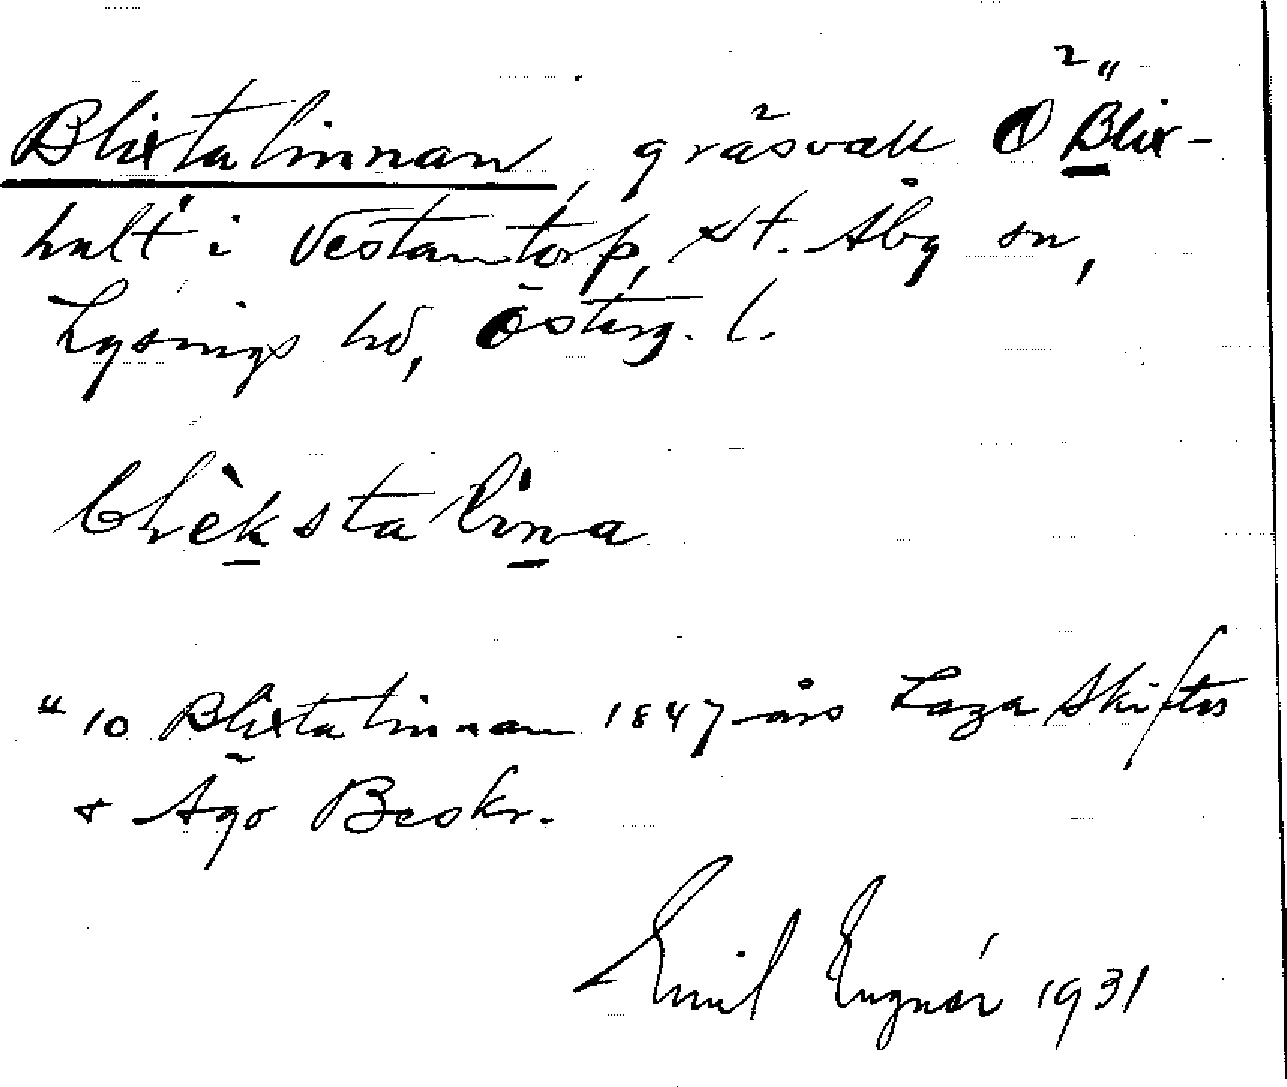 Blixtalinnan, gräsvall Ö Blix-
hult i Vestantorp, St. Åby sn,
Lysings hd, Österg. l.
blèkstalìna
"10 Blixtalinnan 1847 års Laga Skiftes
& Ägo Beskr.
Emil 1931